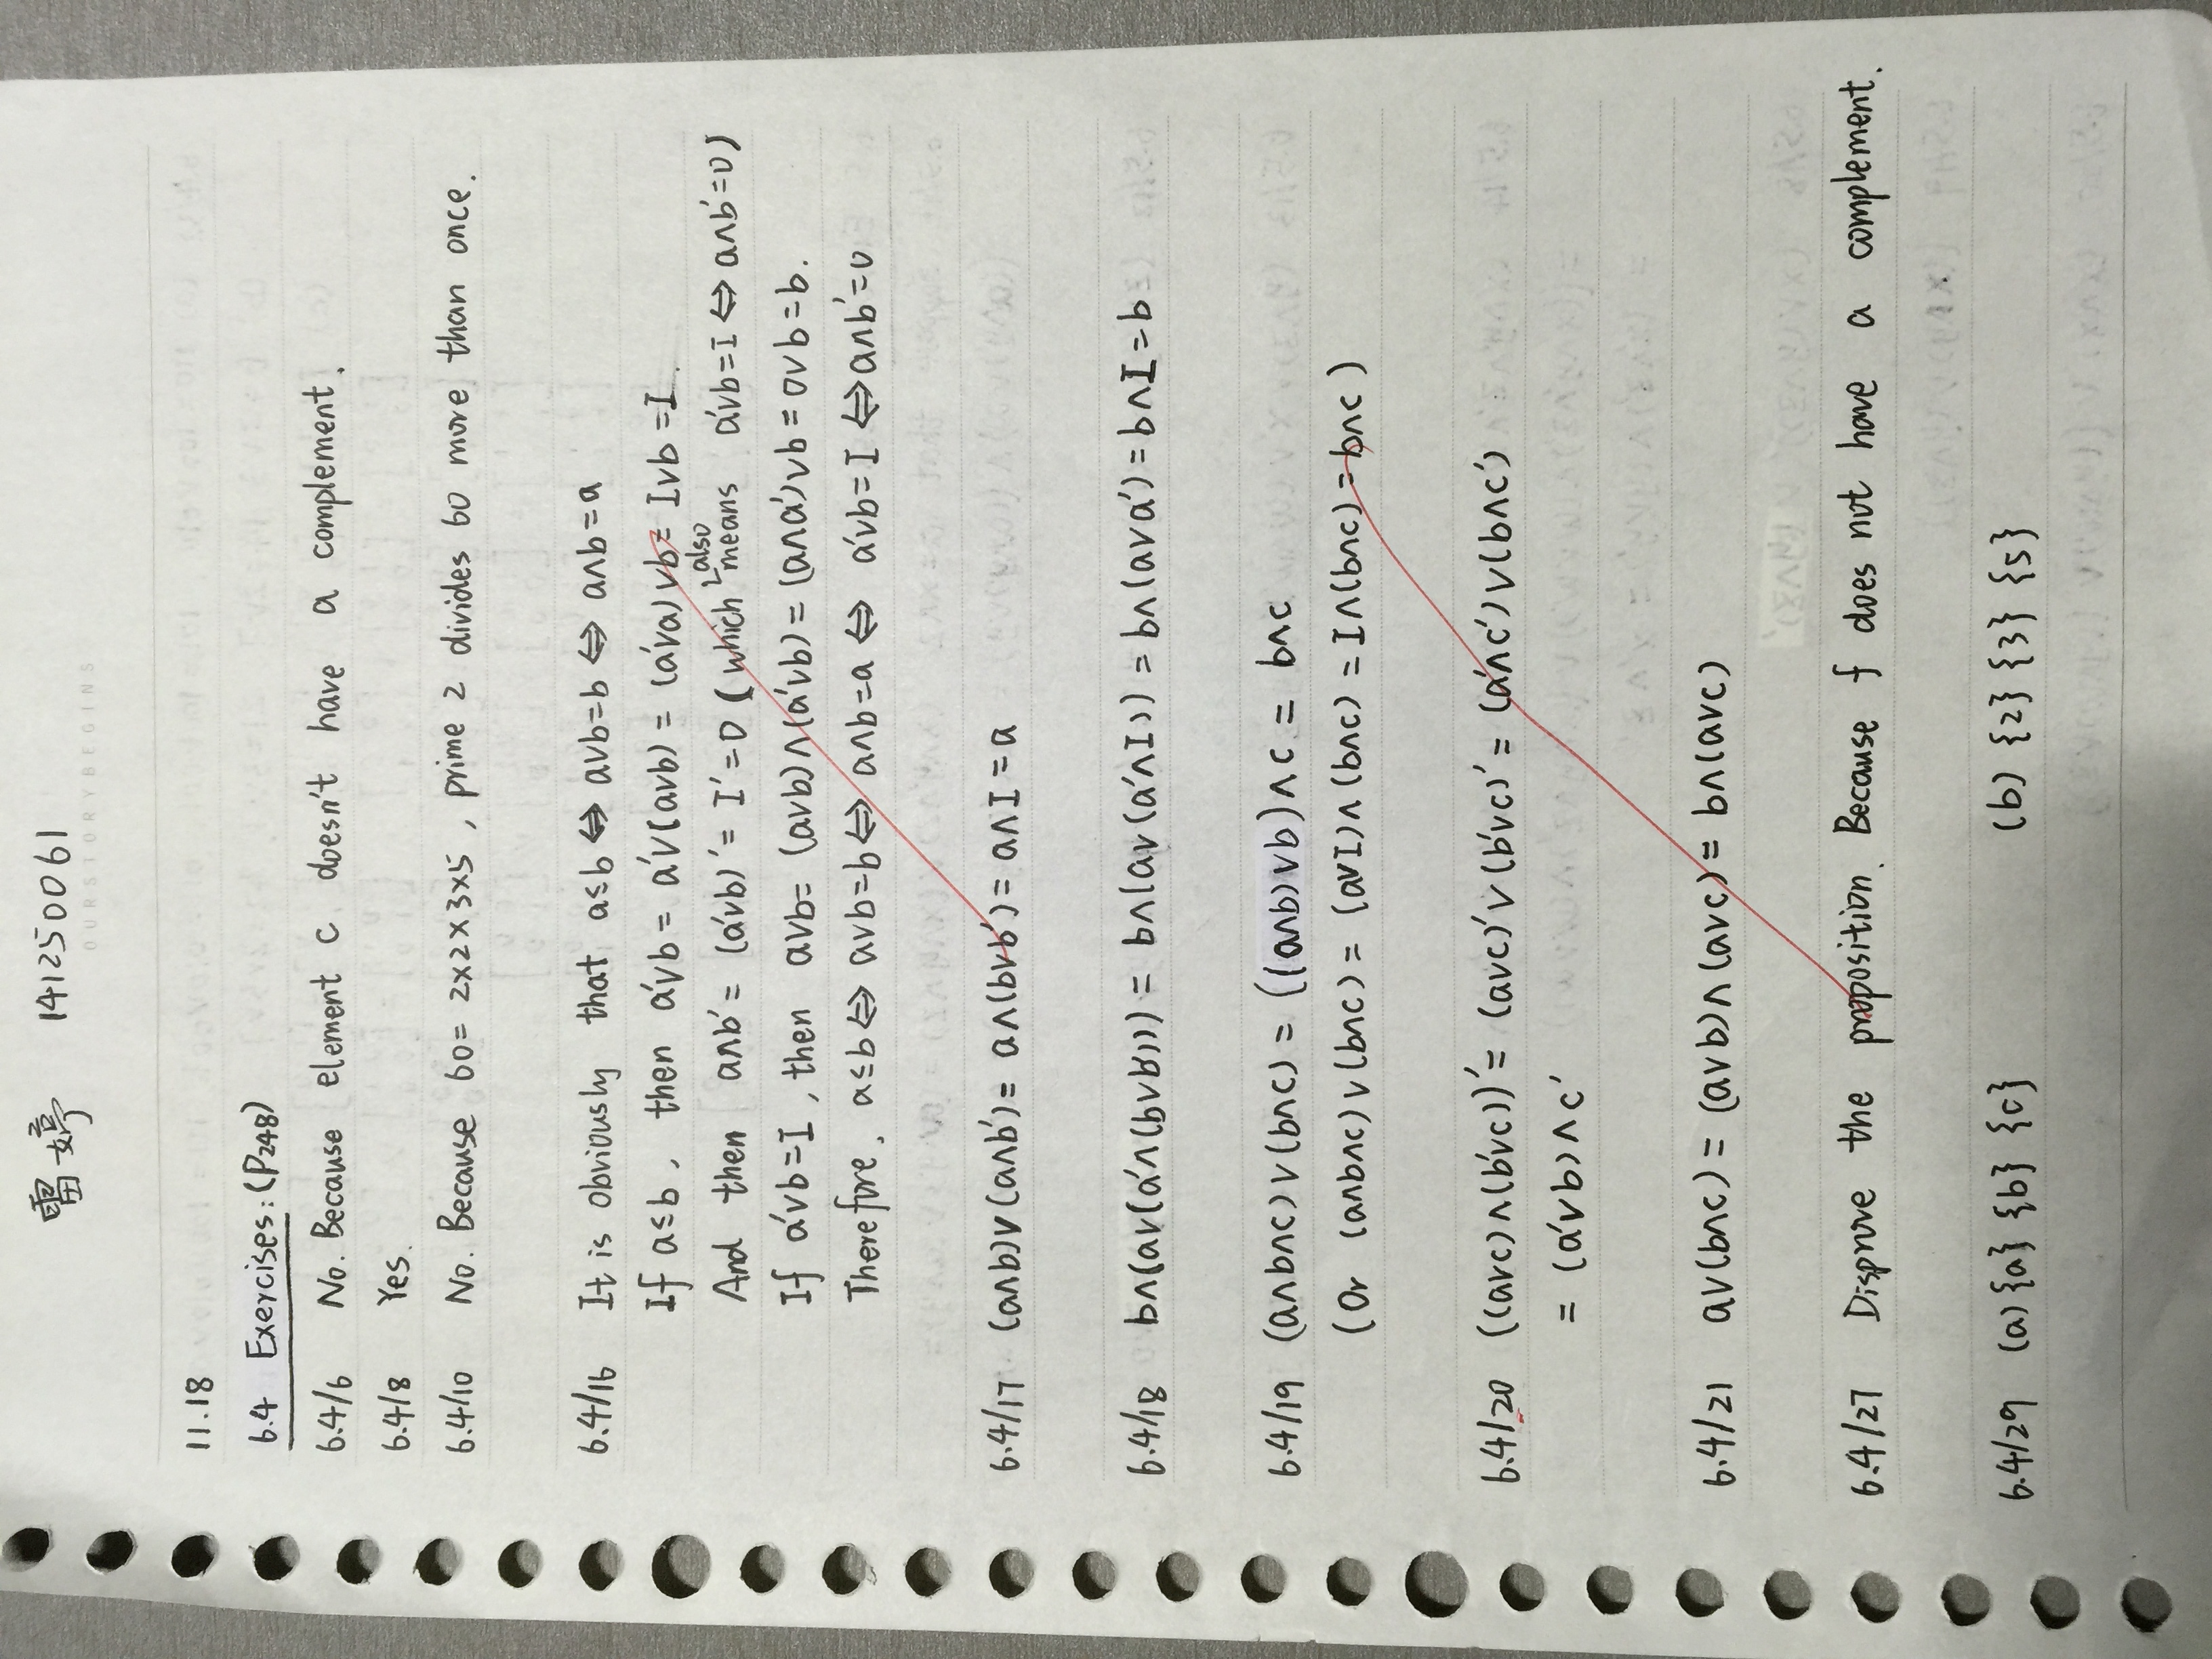 雷婷 141250061
OURSTORYBEGINS
11.18
6.4 Exercises: (P248)
6.4/6 No. Because element c doesn't have a complement.
6.4/8 Yes.
6.4/10 No. Because 60 = 2×2×3×5, prime 2 divides 60 more than once.
6.4/16 It is obviously that a≤b ⇔ a∨b=b ⇔ a∧b=a
If a≤b, then a'∨b = a'∨(a∨b) = (a'∨a)∨b = I∨b = I.
And then a∧b' = (a'∨b)' = I' = 0 (which also means a'∨b=I ⇔ a∧b'=0)
If a'∨b=I, then a∨b= (a∨b)∧(a'∨b) = (a∧a')∨b = 0∨b = b.
Therefore, a≤b ⇔ a∨b=b ⇔ a∧b=a ⇔ a'∨b=I ⇔ a∧b'=0
6.4/17 (a∧b)∨(a∧b') = a∧(b∨b') = a∧I = a
6.4/18 b∧(a∨(a'∧(b∨b'))) = b∧(a∨(a'∧I)) = b∧(a∨a') = b∧I = b
6.4/19 (a∧b∧c)∨(b∧c) = ((a∧b)∨b)∧c = b∧c
(Or (a∧b∧c)∨(b∧c) = (a∨I)∧(b∧c) = I∧(b∧c) = b∧c)
6.4/20 ((a∨c)∧(b'∨c))' = (a∨c)'∨(b'∨c)' = (a'∧c')∨(b∧c')
= (a'∨b)∧c'
6.4/21 a∨(b∧c) = (a∨b)∧(a∨c) = b∧(a∨c)
6.4/27 Disprove the proposition. Because f does not have a complement.
6.4/29 (a) {a} {b} {c} (b) {2} {3} {5}